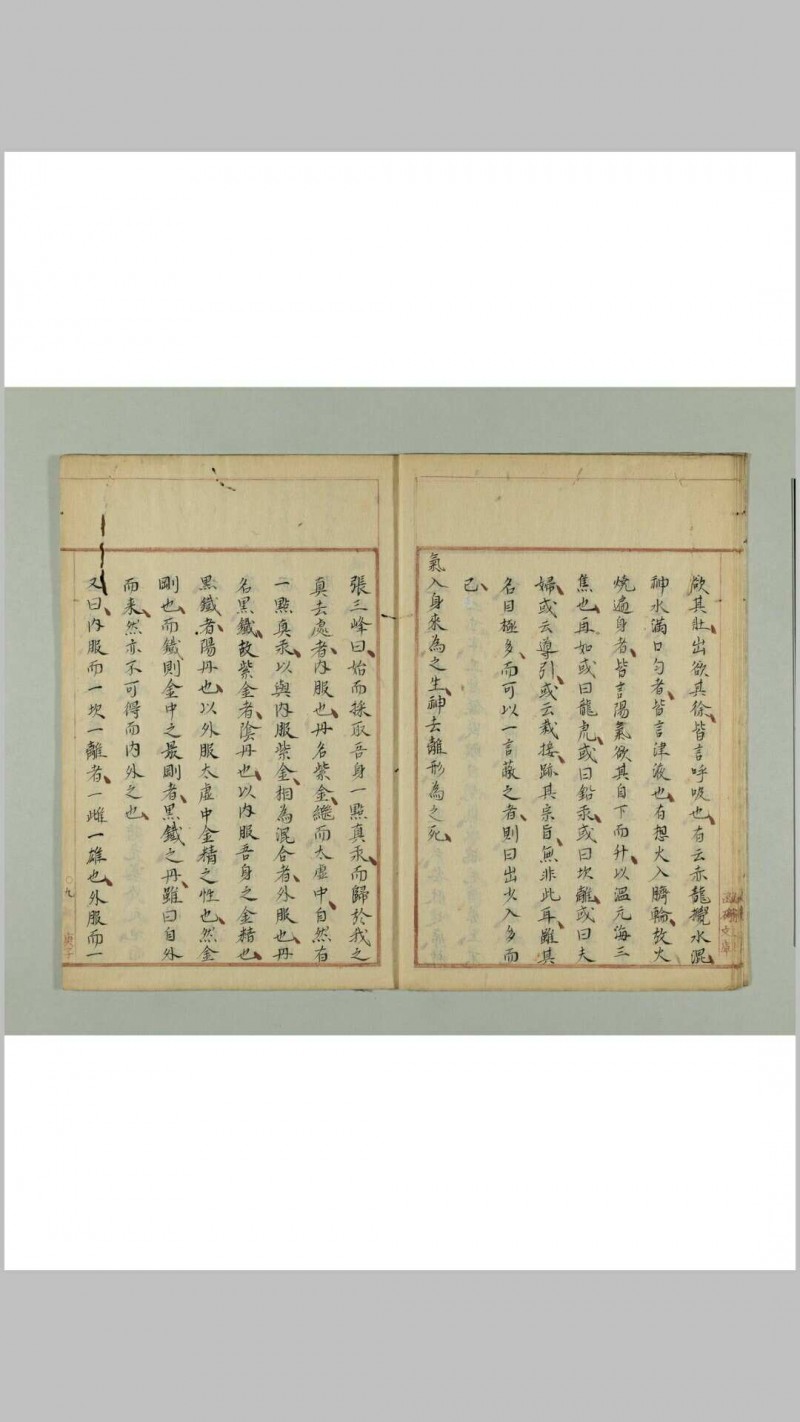 欲其壯出欲其徐皆言呼吸也有云赤龍攪水混
神水滿口勻者皆言津液也有想火入臍輪放火
燒遍身者皆言陽氣欲其自下而升以溫元海三
焦也再如或曰龍虎或曰鉛汞或曰坎離或曰夫
婦或云導引或云栽接跡其宗旨無非此耳雖其
名目極多而可以一言蔽之者則曰出少入多而
已
氣入身來為之生神去離形為之死
張三峰曰始而採取吾身一點真汞而歸於我之
真去處者內服也丹名紫金繼而太虛中自然有
一點真汞以與內服紫金相為混合者外服也丹
名黑鐵故紫金者陰丹也以內服吾身之金精也
黑鐵者陽丹也以外服太虛中金精之性也然金
剛也而鐵則金中之最剛者黑鐵之丹雖曰自外
而來然亦不可得而內外之也
又曰內服而一坎一離者一雌一雄也外服而一
九